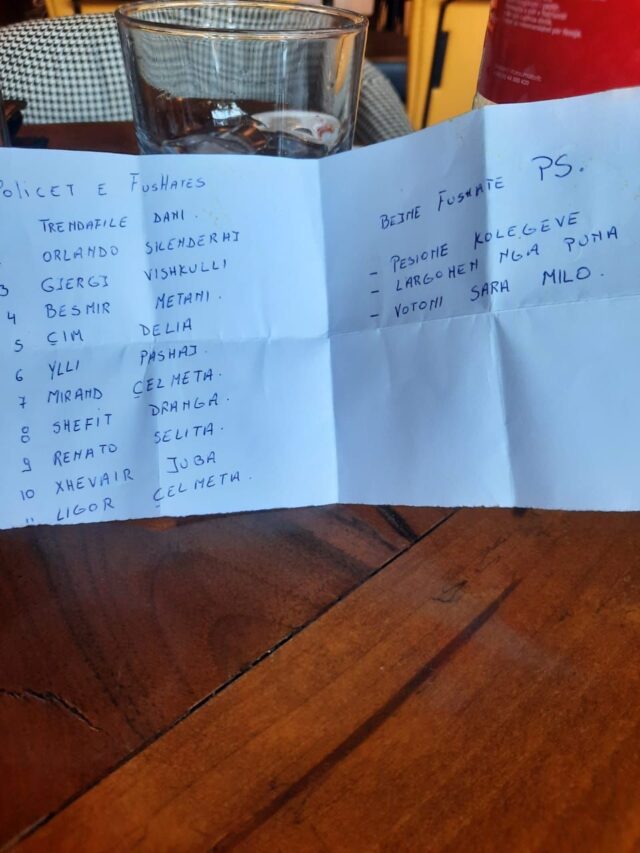 Policet e FusHates
TRENDAFILE DANI.
ORLANDO SKENDERAJ
3 GJERGJ VISHKULLI
4 BESMIR METANI.
5 ÇIM DELIA
6 YLLI PASHAJ.
7 MIRAND ÇELMETA.
8 SHEFIT DRANGA.
9 RENATO SELITA.
10 XHEVAIR JUBA
11 LIGOR ÇELMETA.
BEJNE FUSHATE PS.
- PESIONE KOLEGEVE
- LARGOHEN NGA PUNA
- VOTONI SARA MILO.